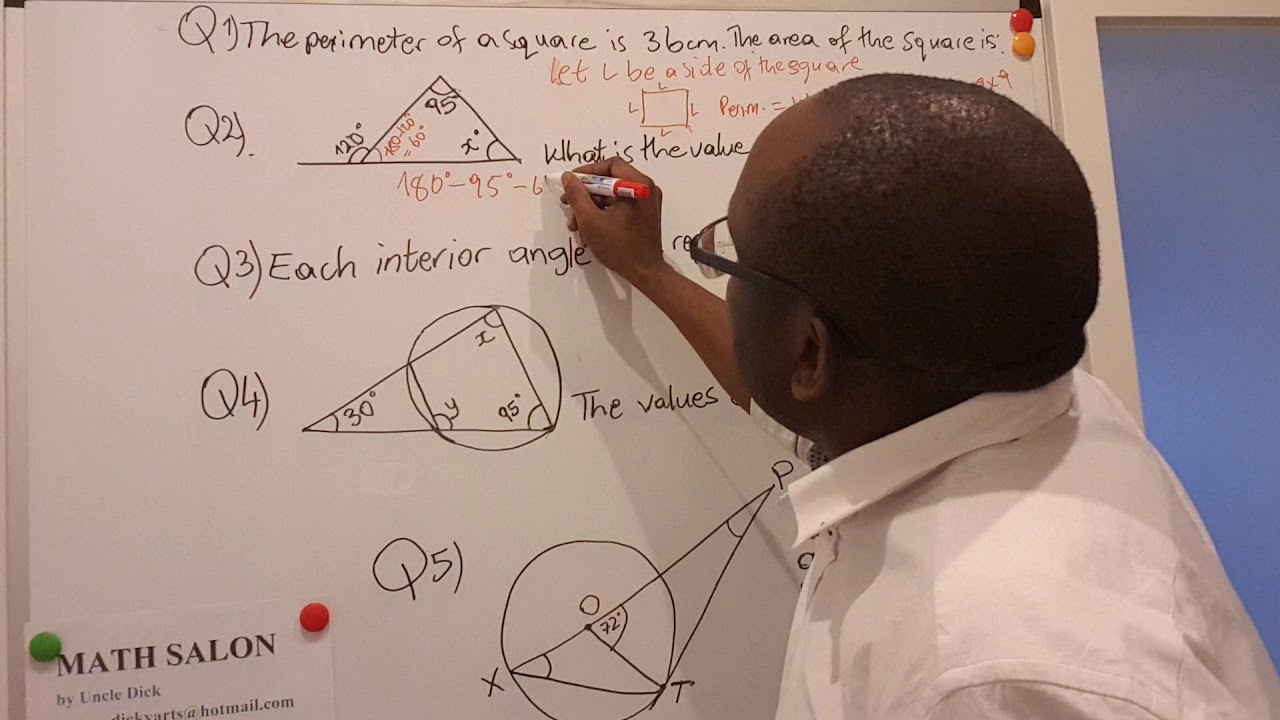 Q1) The perimeter of a square is 36cm. The area of the square is:
Let L be a side of the square
L
L L
L
Perm. =
Q2).
120°
180-120°
= 60°
95°
x°
What is the value
180°-95°-6
Q3) Each interior angle
Q4)
30°
x
y
95°
The values
Q5)
P
O
72°
X
T
MATH SALON
by Uncle Dick
dickyarts@hotmail.com